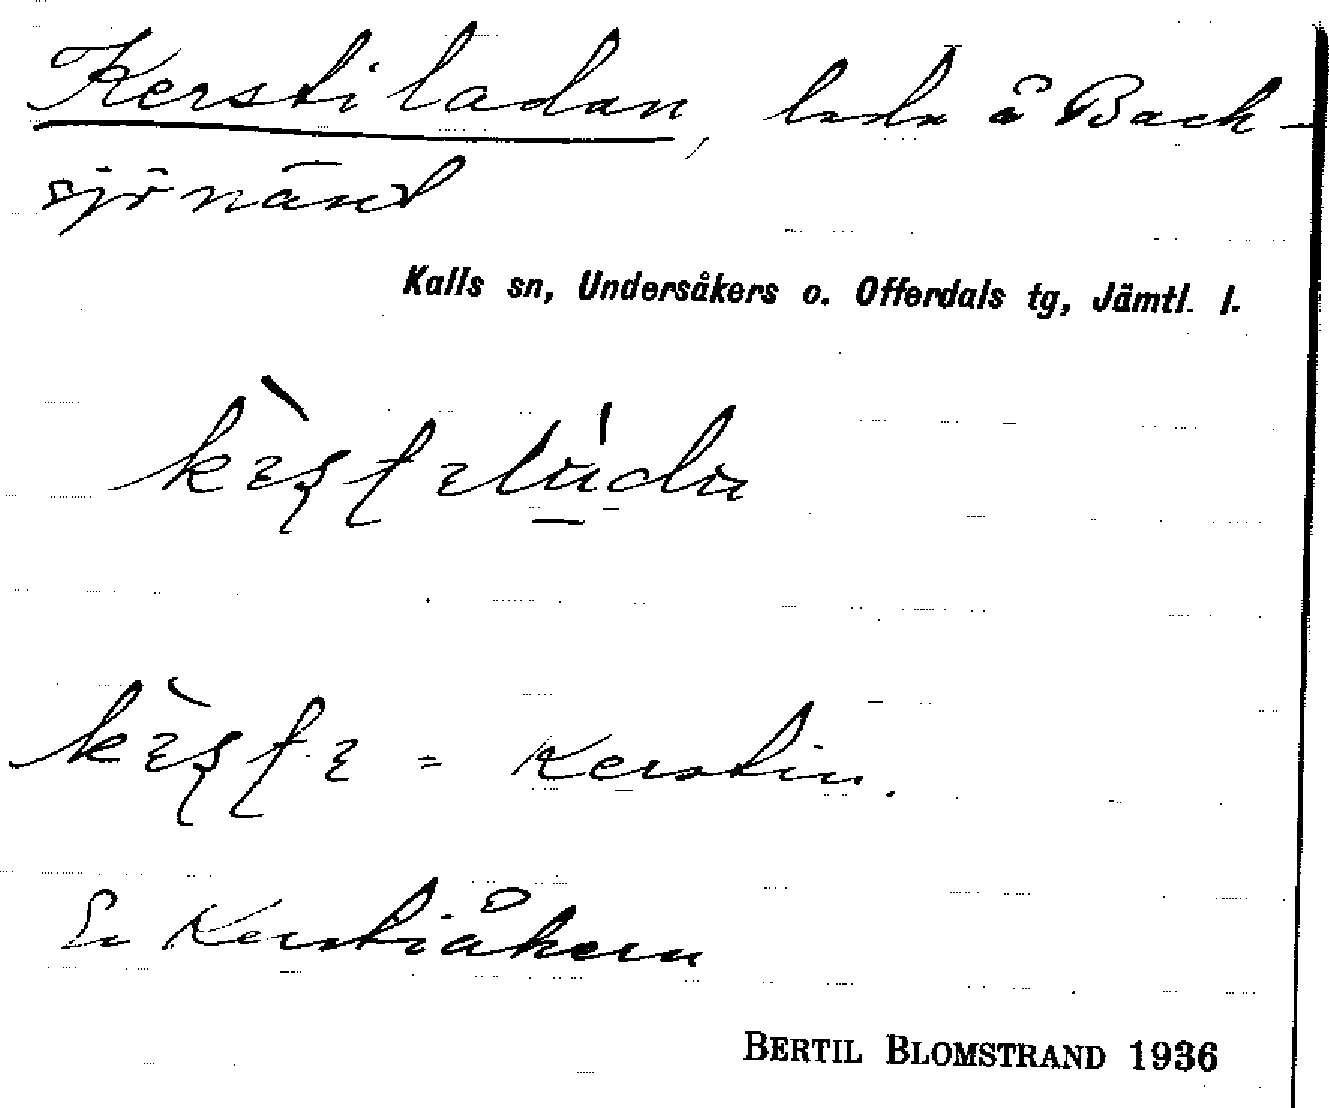 Kerstiladan, lada å Back-
sjönäset
Kalls sn, Undersåkers o. Offerdals tg, Jämtl. l.
= Kerstin.
Kerstiåkern
BERTIL BLOMSTRAND 1936